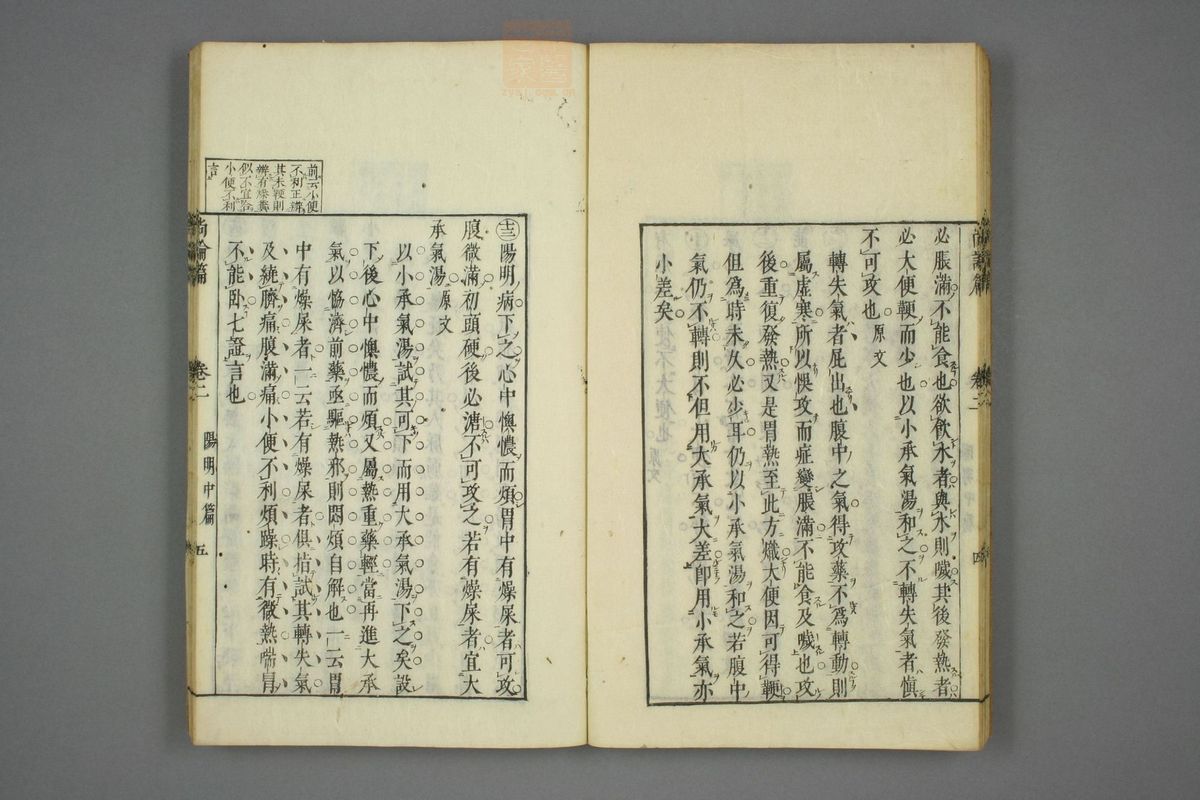 必脹滿不能食也欲飲水者與水則噦其後發熱者
必大便鞕而少也以小承氣湯和之不轉失氣者愼
不可攻也原文
轉失氣者屁出也腹中之氣得攻藥不爲轉動則
屬虛寒所以悞攻而症變脹滿不能食及噦也攻
後重復發熱又是胃熱至此方熾大便因可得鞕
但爲時未久必少耳仍以小承氣湯和之若腹中
氣仍不轉則不但用大承氣大差卽用小承氣亦
小差矣
四
十三陽明病下之心中懊憹而煩胃中有燥屎者可攻
腹微滿初頭硬後必溏不可攻之若有燥屎者宜大
承氣湯原文
以小承氣湯試其可下而用大承氣湯下之矣設
下後心中懊憹而煩又屬熱重藥輕當再進大承
氣以協濟前藥亟驅熱邪則悶煩自解也一云胃
中有燥屎者一云若有燥屎者俱指試其轉失氣
及繞臍痛腹滿痛小便不利煩躁時有微熱喘冒
不能臥七證言也
前云小便
不利正辨
其未鞕則
辨有燥糞
似不宜合
小便不利
言
尚論篇
卷二
陽明中篇
五
zysj.com.cn